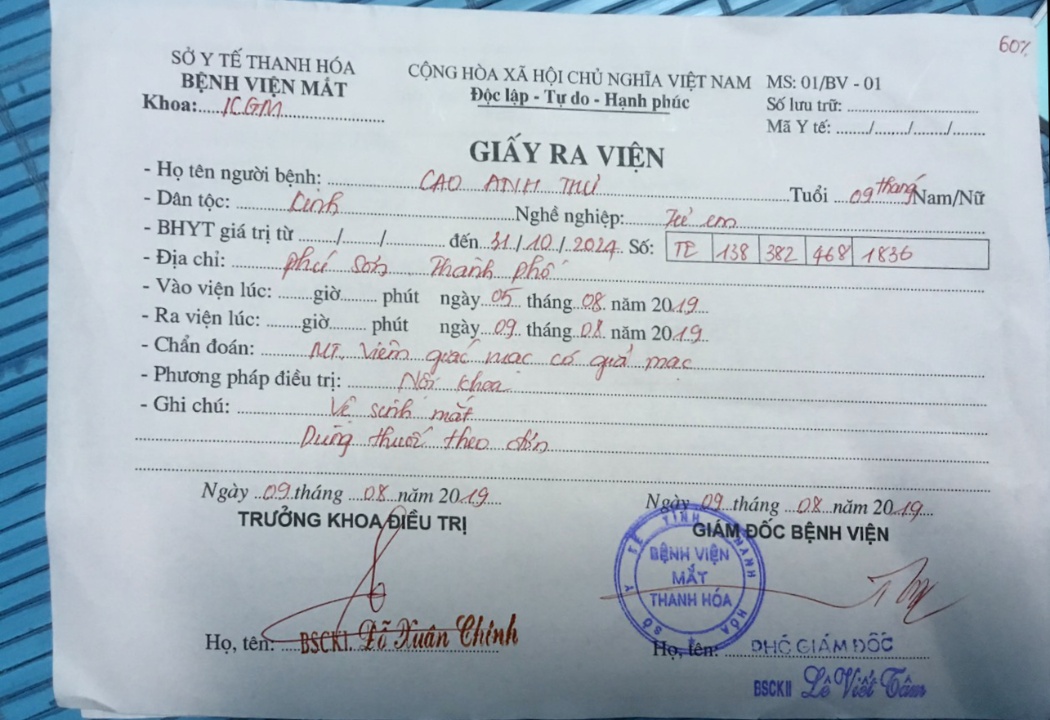 60%
SỞ Y TẾ THANH HÓA
BỆNH VIỆN MẮT
Khoa:.....KGM.....
CỘNG HÒA XÃ HỘI CHỦ NGHĨA VIỆT NAM
Độc lập - Tự do - Hạnh phúc
MS: 01/BV - 01
Số lưu trữ: ..............................
Mã Y tế: ......./......./......./.......
GIẤY RA VIỆN
- Họ tên người bệnh: CAO ANH THƯ Tuổi 09 tháng Nam/Nữ
- Dân tộc: Kinh Nghề nghiệp: Trẻ em
- BHYT giá trị từ ....../....../............ đến 31/10/2024 Số: TE 138 382 468 1836
- Địa chỉ: Phú Sơn, Thanh phố
- Vào viện lúc: .......giờ........ phút ngày 05 tháng 08 năm 2019
- Ra viện lúc: .......giờ........ phút ngày 09 tháng 08 năm 2019
- Chẩn đoán: MT, Viêm giác mạc có giả mạc
- Phương pháp điều trị: Nội khoa
- Ghi chú: Vệ sinh mắt
Dùng thuốc theo đơn
Ngày 09 tháng 08 năm 2019
TRƯỞNG KHOA ĐIỀU TRỊ
Họ, tên: BSCKI. Đỗ Xuân Chinh
Ngày 09 tháng 08 năm 2019
GIÁM ĐỐC BỆNH VIỆN
SỞ Y TẾ TỈNH THANH HÓA
BỆNH VIỆN
MẮT
THANH HÓA
Họ, tên: PHÓ GIÁM ĐỐC
BSCKII Lê Viết Tâm